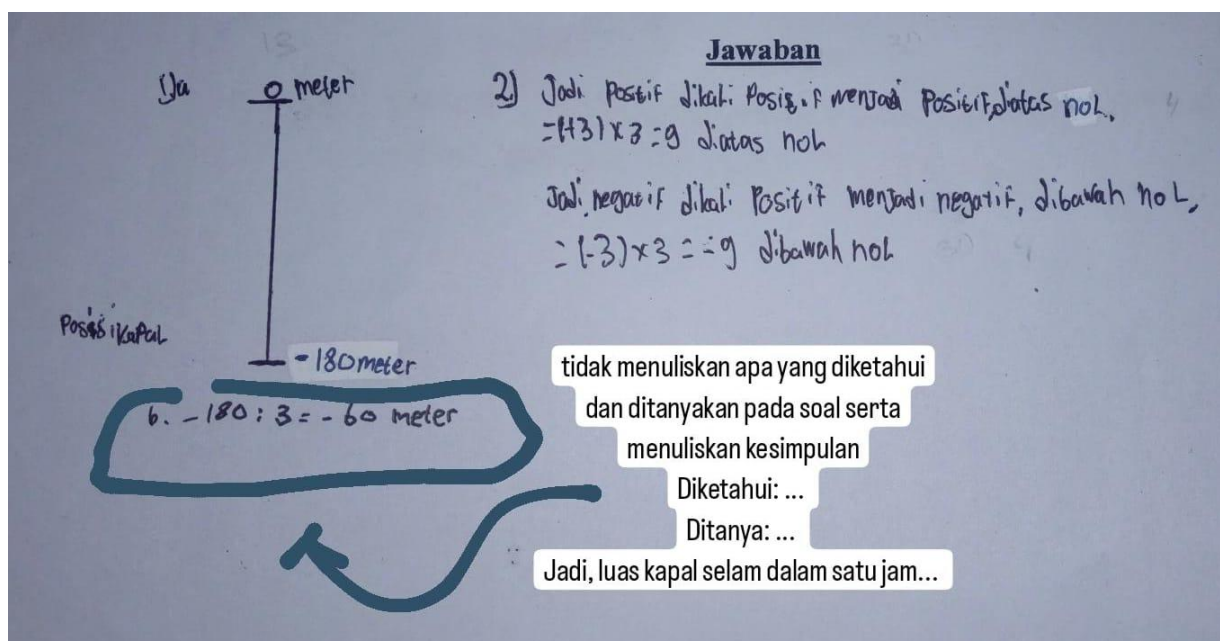 Jawaban
1)a 0 meter
Posisi Kapal
-180 meter
b. -180 : 3 = - 60 meter
2) Jadi Positif dikali Positif menjadi Positif, diatas noL.
=(+3) x 3 = 9 diatas noL
Jadi negatif dikali Positif menjadi negatif, dibawah noL,
= (-3) x 3 = -9 dibawah noL
tidak menuliskan apa yang diketahui
dan ditanyakan pada soal serta
menuliskan kesimpulan
Diketahui: ...
Ditanya: ...
Jadi, luas kapal selam dalam satu jam...